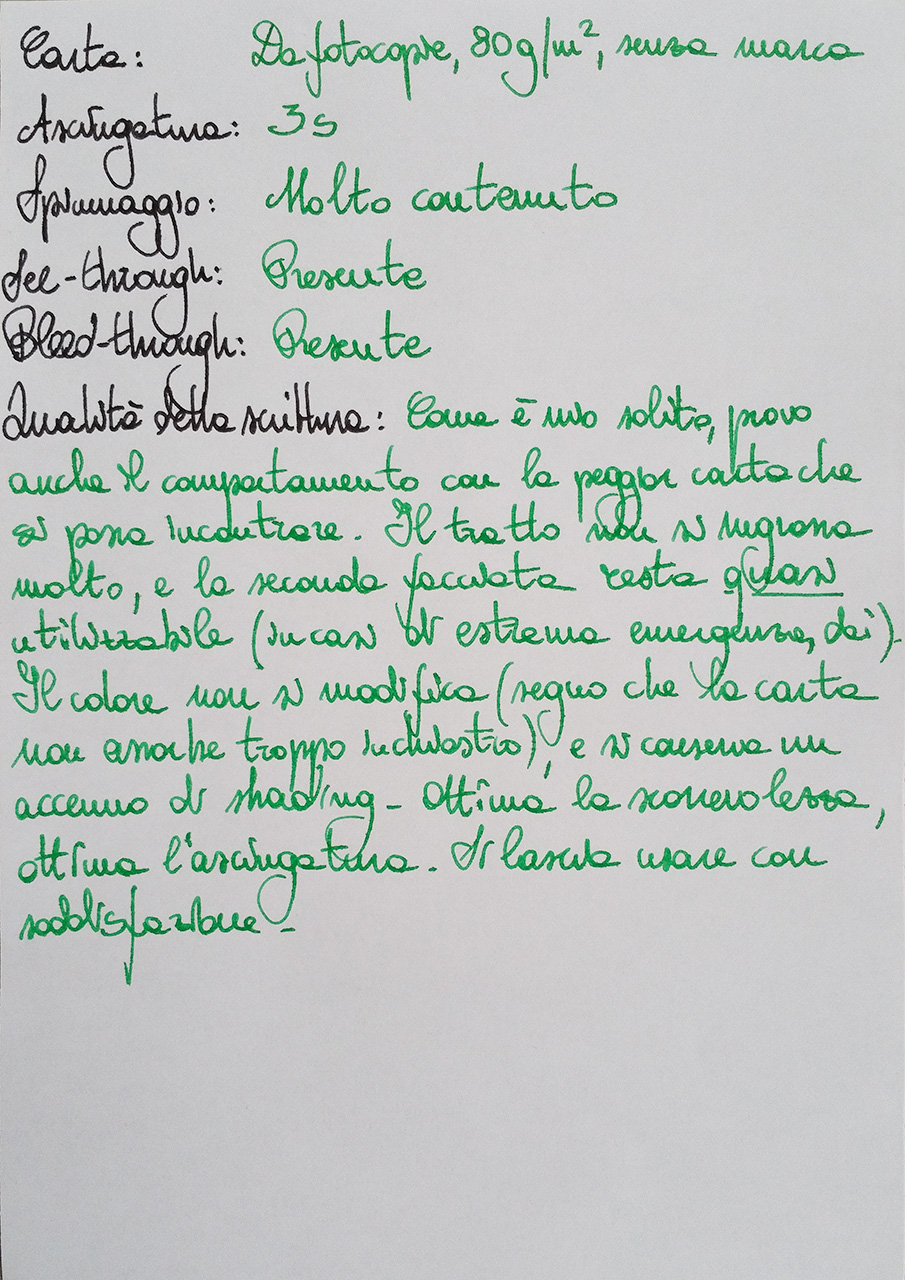 Carta: Da fotocopie, 80g/m², senza marca
Asciugatura: 3s
Spiumaggio: Molto contenuto
See-through: Presente
Bleed-through: Presente
Qualità della scrittura: Come è mio solito, provo
anche il comportamento con la peggior carta che
si possa incontrare. Il tratto non si ingrossa
molto, e la seconda facciata resta quasi
utilizzabile (in casi di estrema emergenza, dai).
Il colore non si modifica (segno che la carta
non assorbe troppo inchiostro), e si conserva un
accenno di shading - Ottima la scorrevolezza,
ottima l'asciugatura. Si lascia usare con
soddisfazione -